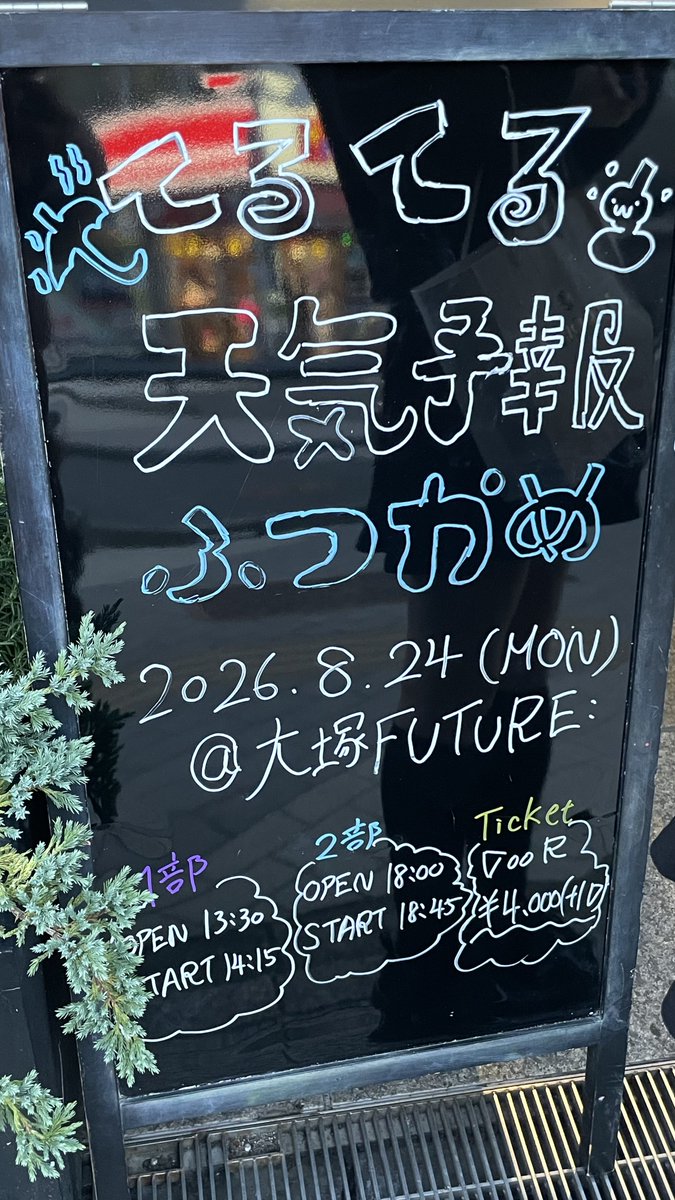 てるてる
天気予報
ふつかめ
2026.8.24 (MON)
@大塚FUTURE:
1部
OPEN 13:30
START 14:15
2部
OPEN 18:00
START 18:45
Ticket
DOOR
¥4,000(+1D